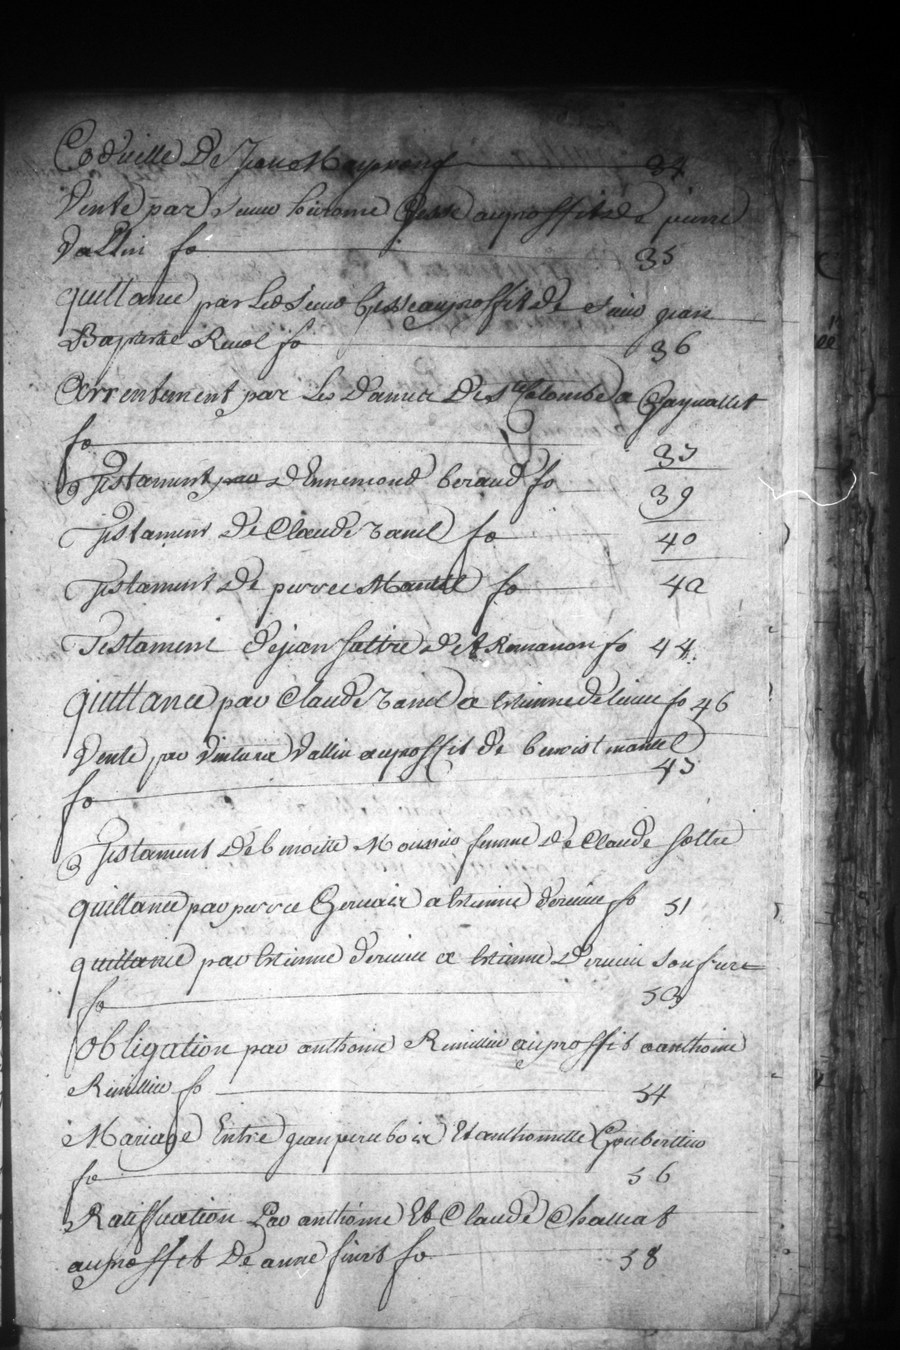 Codicille De Jean Mayproud fo 34
Vente par sieur hierome Gesse au proffit de pierre
Vallin fo 35
quittance par Led sieur Gesse au proffit de sieur jean
Baptiste Revol fo 36
Arrentement par Les Dames De Ste Colombe a Gayvallet
fo 37
Testament par D Ennemond beraud fo 39
Testament De Claude ravel fo 40
Testament De pierre Mantel fo 42
Testament de jean sattre dit Romanon fo 44
quittance par Claude ravel a estienne fo 46
Vente par Vallin au proffit de benoist mantel
fo 47
Testament De benoite femme de Claude sattre
quittance par pierre Gervais a estienne fo 51
quittance par estienne a estienne son frere
fo 53
Obligation par anthoine Remillieu au proffit anthoine
Remillieu fo 54
Mariage Entre jean Et anthoinette
fo 56
Ratiffication Par anthoine Et Claude Challeat
au proffit De anne fo 58